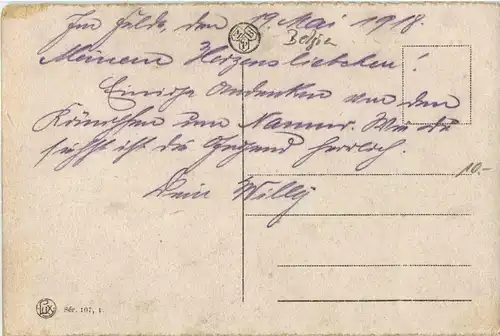 Im Felde, den 19. Mai 1918.
Belgien
Meinem Herzensliebchen!
Einige Andenken von den
Kämpfen um Namur. Wie du
siehst ist die Gegend herrlich.
10.-
Dein Willy
LUX
Sér. 107, 1.